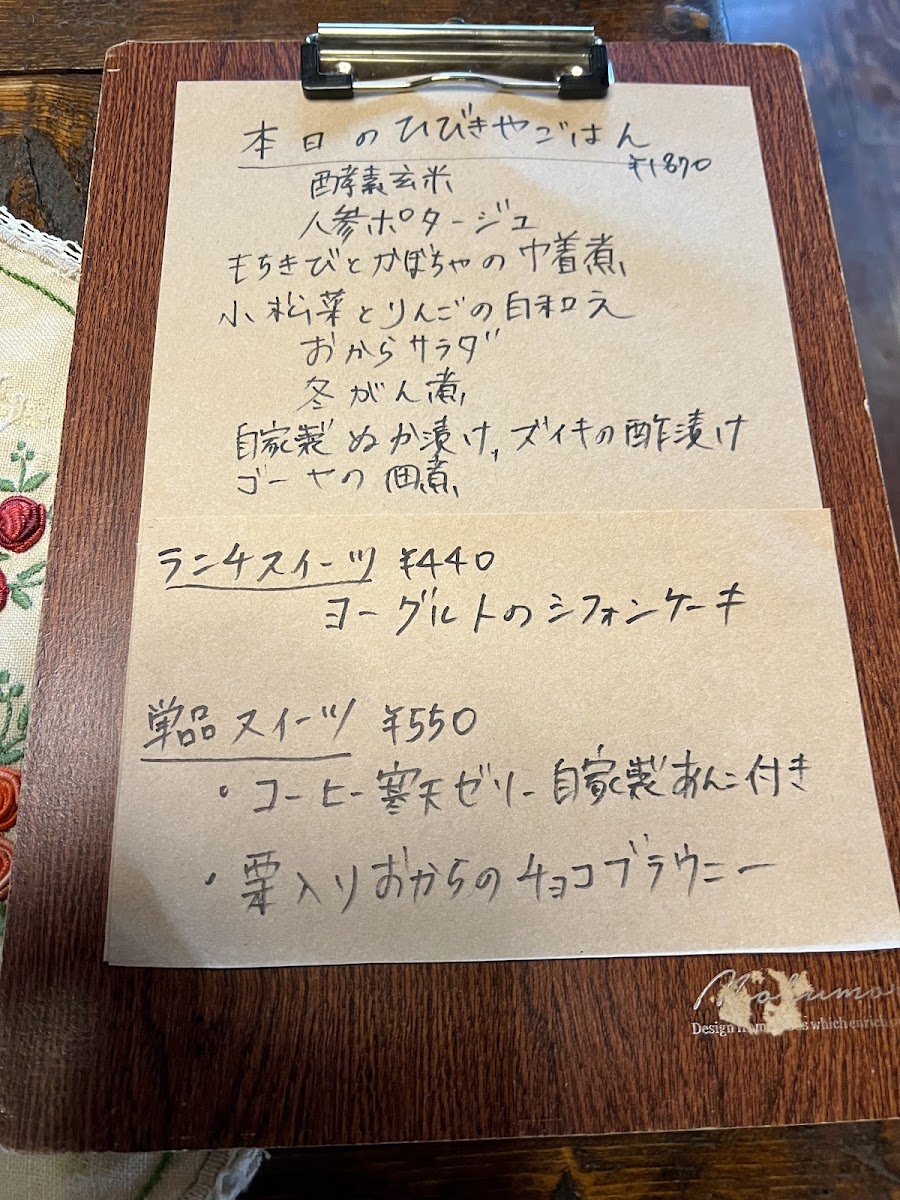 本日のひびきやごはん
¥1870
酵素玄米
人参ポタージュ
もちきびとかぼちゃの巾着煮
小松菜とりんごの白和え
おからサラダ
冬がん煮
自家製ぬか漬け,ズイキの酢漬け
ゴーヤの佃煮
ランチスイーツ ¥440
ヨーグルトのシフォンケーキ
単品スイーツ ¥550
・コーヒー寒天ゼリー自家製あんこ付き
・栗入りおからのチョコブラウニー
Design which enrich